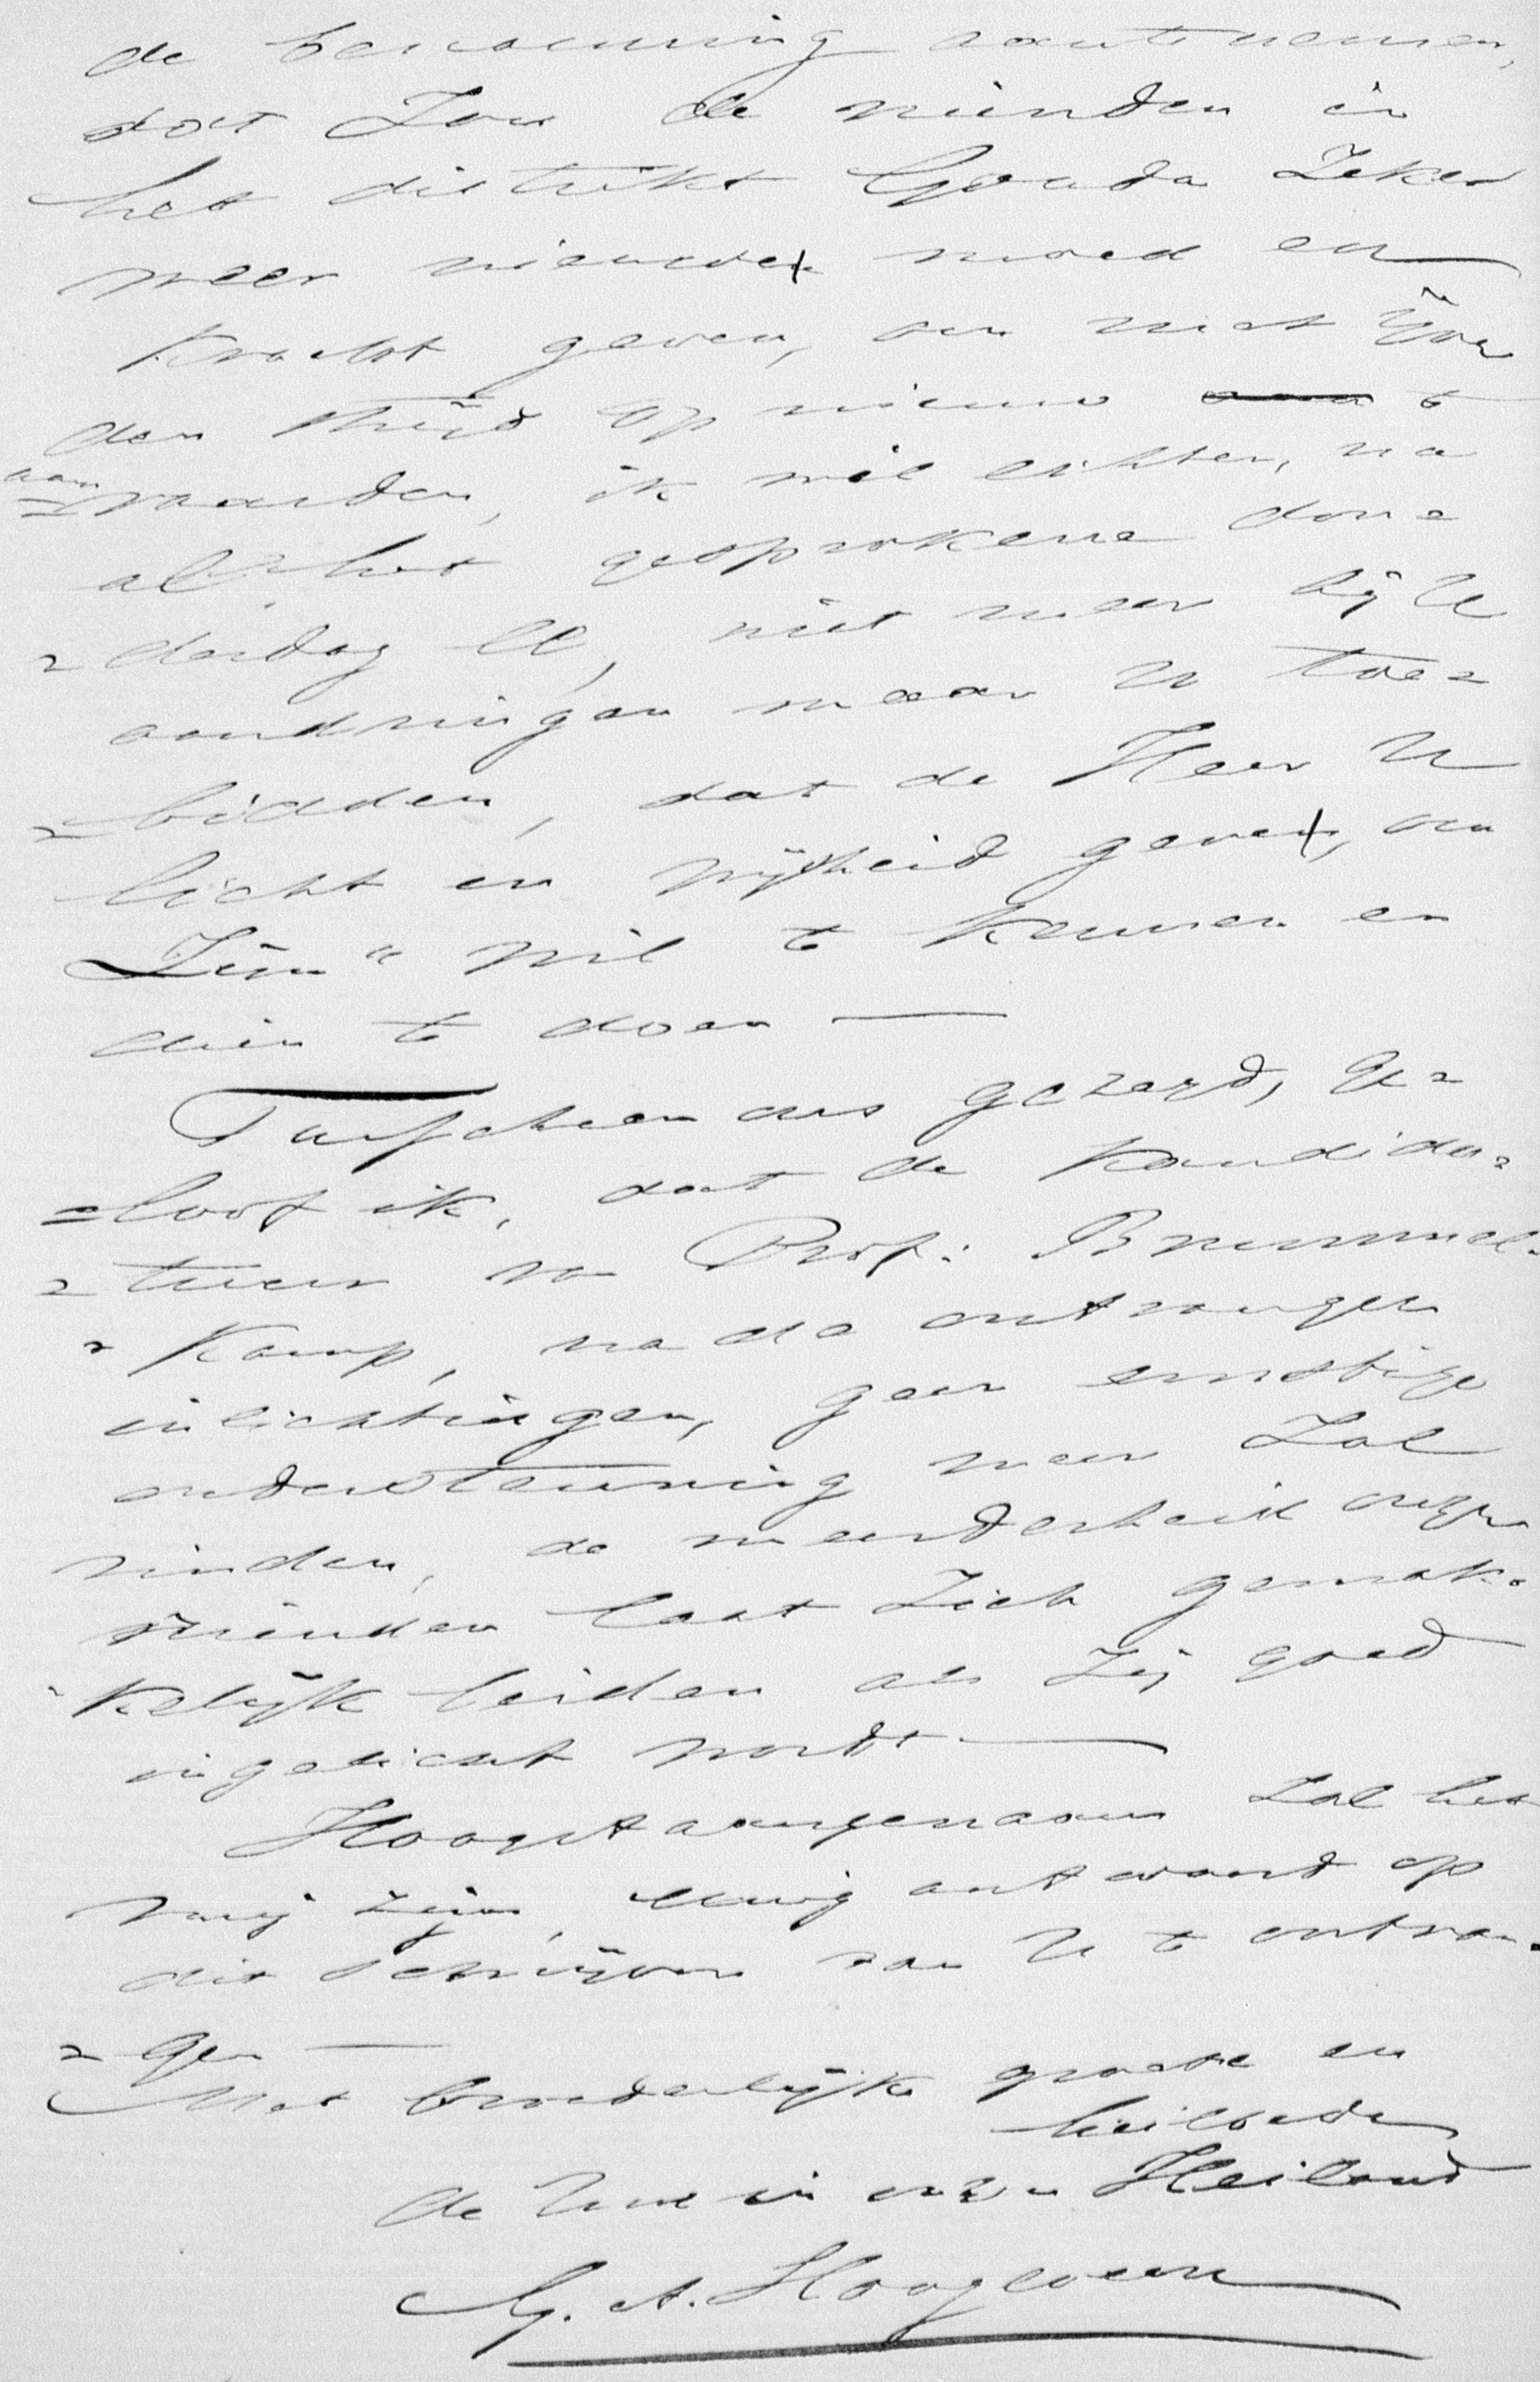 de benoeming aantenemen,
dat Zou de vrinden in
het distrikt Gouda Zeker
weer nieuwe moed en
Kracht geven, om met ijver
den strijd op nieuw te
aan=
=vaarden, ik wil echter, na
al het gesprokene don=
=derdag ll, niet meer bij U
aandringen maar U toe=
=bidden, dat de Heer U
licht en wijsheid geve, om
Zijn" wil te kennen en
dien te doen —
Tusschen ons gezegd, ge=
=loof ik, dat de Kandida=
=tuur van Prof: Brummel=
=Kamp, na de ontvangen
inlichtingen, geen ernstige
ondersteuning meer Zal
vinden, de meerderheid onzer
vrienden laat Zich gemak=
=kelijk leiden als Zij goed
ingelicht wordt —
Hoogst aangenaam Zal het
mij zijn, eenig antwoord op
dit schrijven van U te ontvan=
=gen —
Met broederlijke groete en
heilbede
de Uwe in onzen Heiland
G. A. Hoogeveen